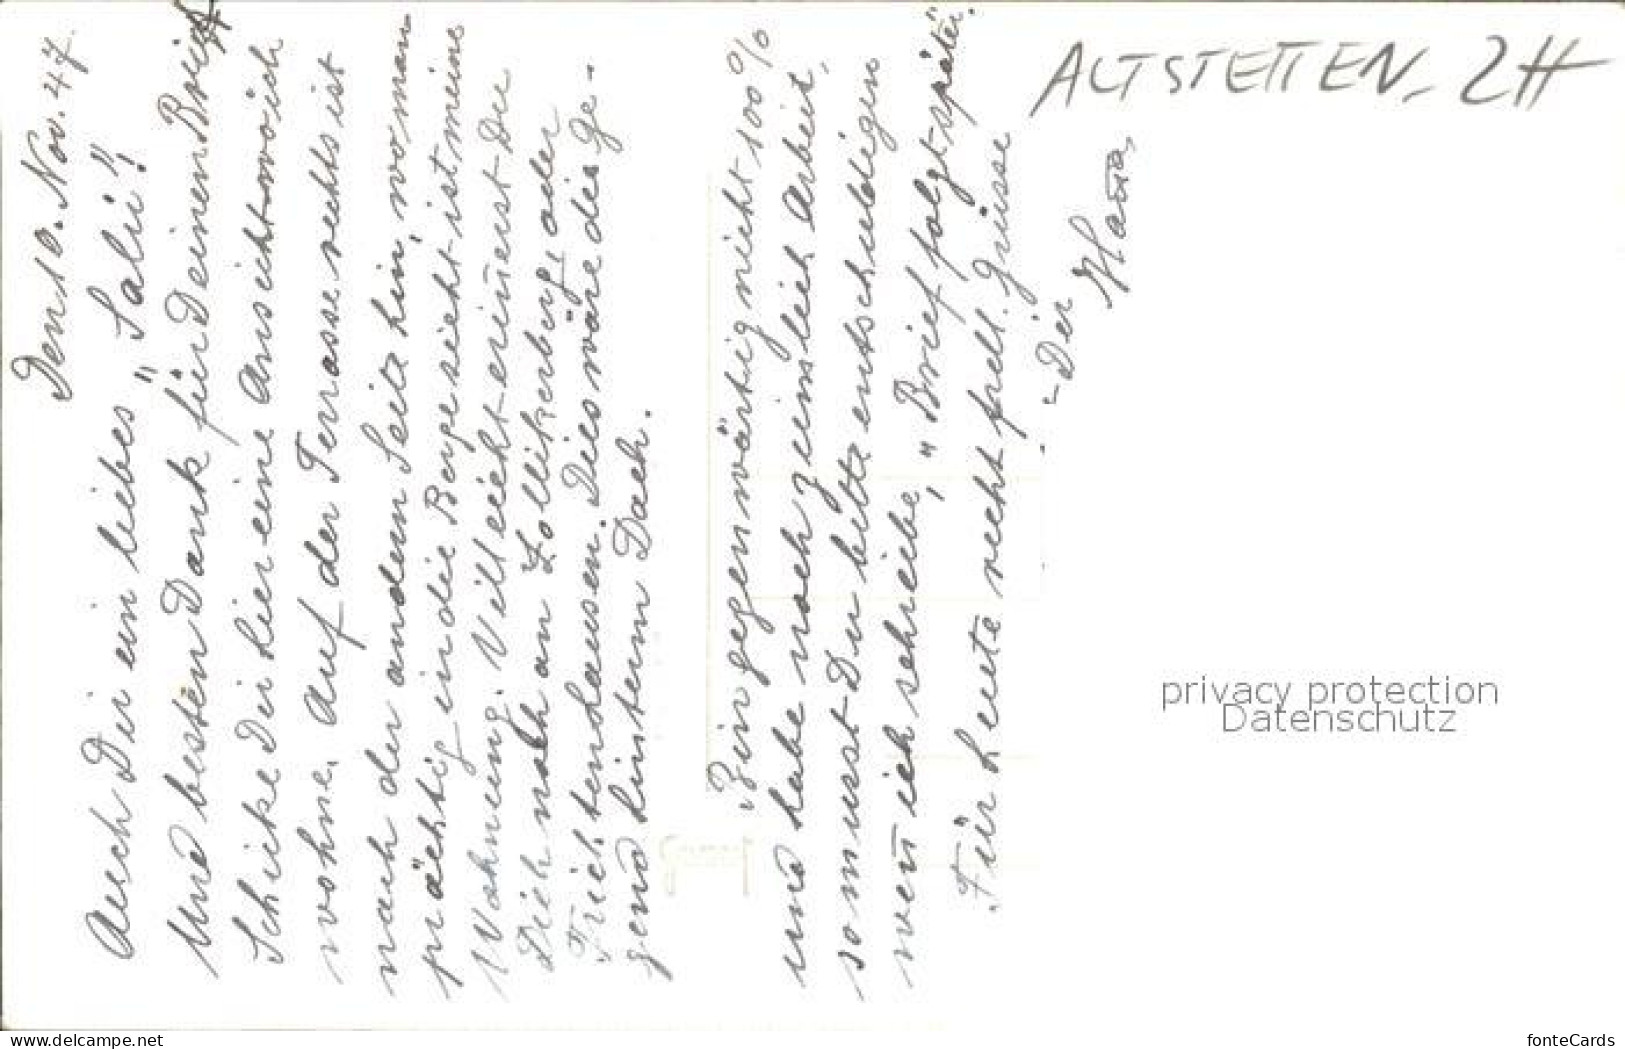 Den 10. Nov. 47.
Auch Dir ein liebes "Salü"!
Und besten Dank für Deinen Brief
Schike Dir hier eine Ansicht wo ich
wohne. Auf der Terrasse rechts ist
nach der andern Seite hin, wo man
prächtig in die Berge sieht ist meine
Wohnung. Villeicht erin̄erst Du
Dich noch an Zollikerberg, oder
Trichtenhausen. Dies wäre die Ge-
gend hinterm Dach.
Bin gegenwärtig nicht 100%
und habe noch zimlich Arbeit,
so musst Du bitte entschuldigen
wen̄ ich schreibe, "Brief folgt später".
Für heute recht frdl. Grüsse
- Der
ALTSTETTEN - ZH
privacy protection
Datenschutz
www.delcampe.net
fonteCards